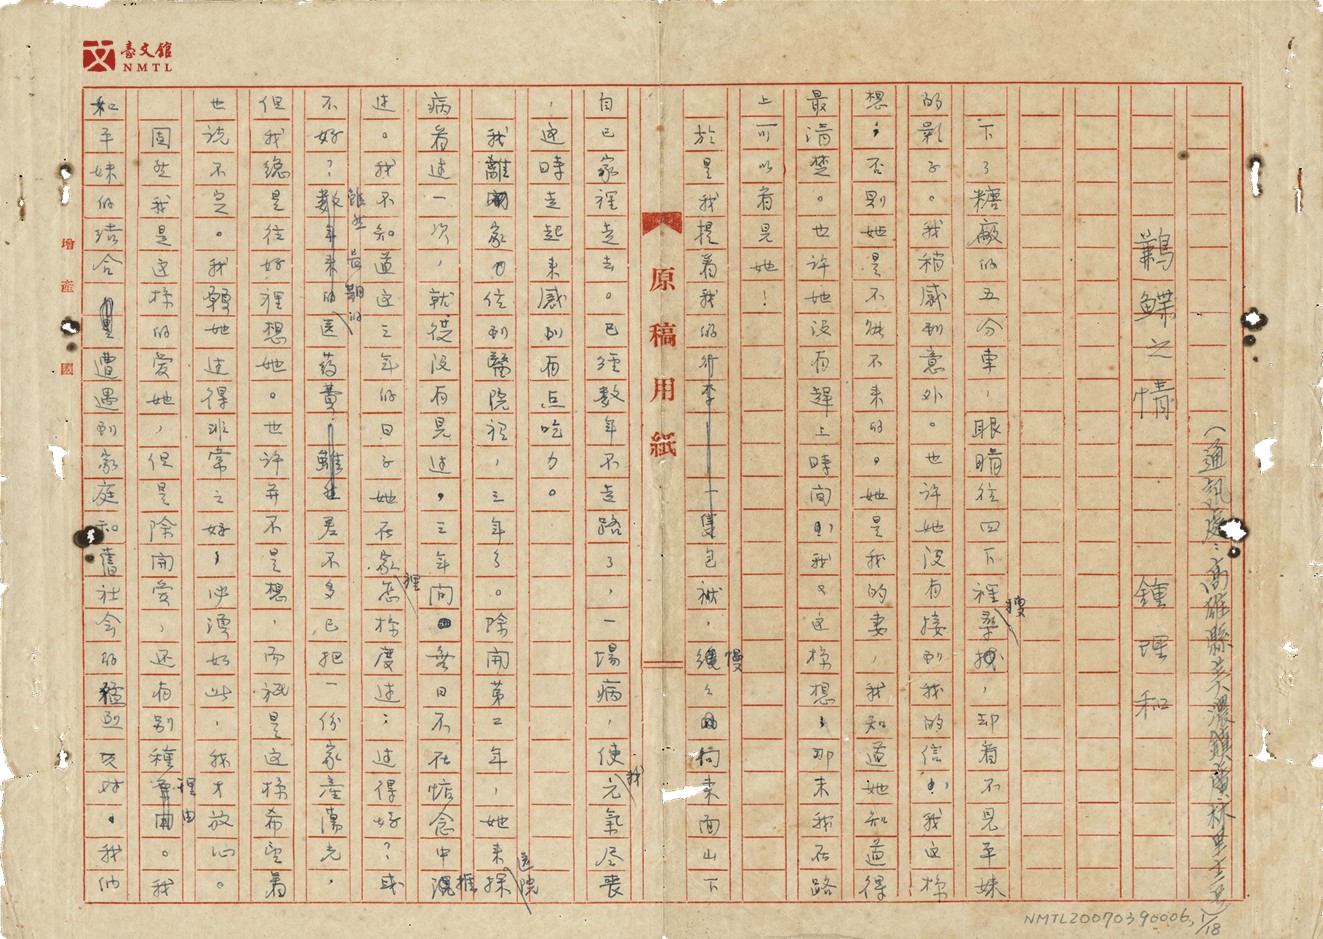 臺文館
NMTL
(通訊處：高雄縣美濃鎮廣林里
鶼鰈之情
鍾理和
下了糖廠的五分車，眼睛往四下裡搜找，却看不見平妹
的影子。我稍感到意外。也許她沒有接到我的信，我这樣
想，否則她是不能不來的。她是我的妻，我知道她知道得
最清楚。也許她沒有趕上時间，我又这樣想，那末我在路
上可以看見她！
於是我提着我的行李——一隻包袱，慢慢向東面山下
自己家裡走去。已經数年不走路了，一場病，使我元氣尽喪
，这時走起來感到有点吃力。
我離開家住到醫院裡，三年了。除開第二年，她來医院探
病看过一次，就從沒有見过。三年间無日不在惦念中
过。我不知道这三年的日子她在家裡怎樣度过；过得好？或
不好？雖然長期的医药費，差不多已把一份家產蕩光，
但我總是往好裡想她。也许并不是想，而祇是这樣希望着
也說不定。我願她过得非常之好，必須如此，我才放心。
固然我是这樣的愛她，但是除開愛，还有別種理由。我
和平妹的结合遭遇到家庭和舊社会的猛烈反对。我们
原稿用紙
增產
國
NMTL20070390006, 1/18